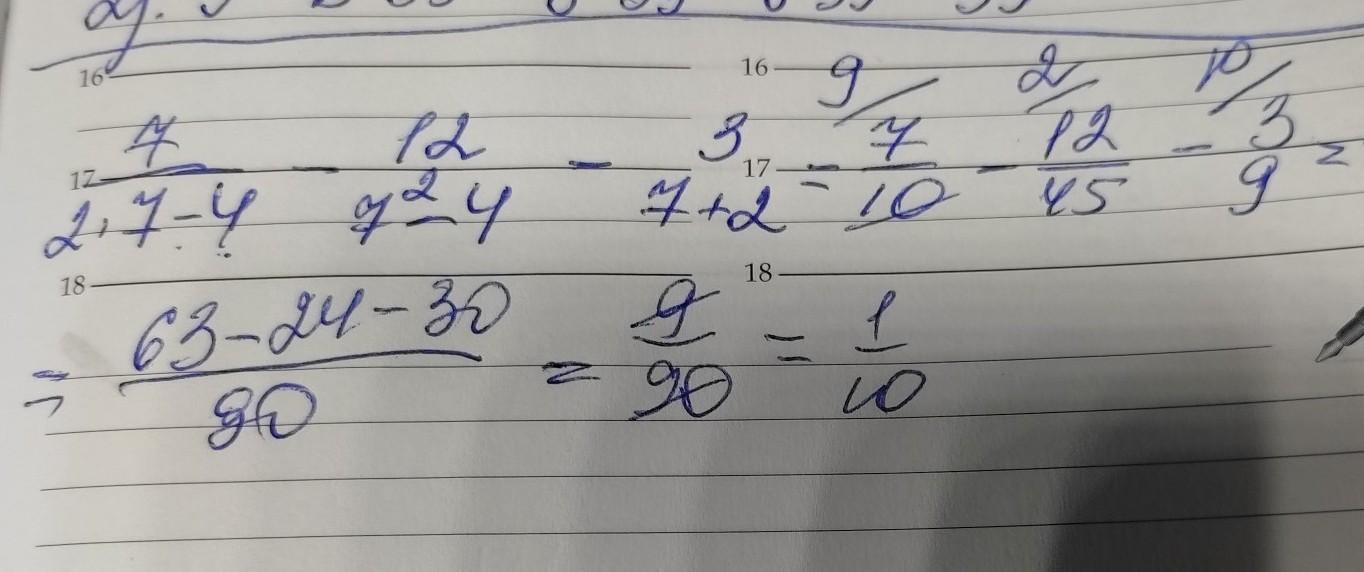 16
16 9/ 2/ 10/
17 7/(2·7-4) - 12/(7²-4) - 3/(7+2) 17 = 7/10 - 12/45 - 3/9 =
18
18
= (63-24-30)/90 = 9/90 = 1/10